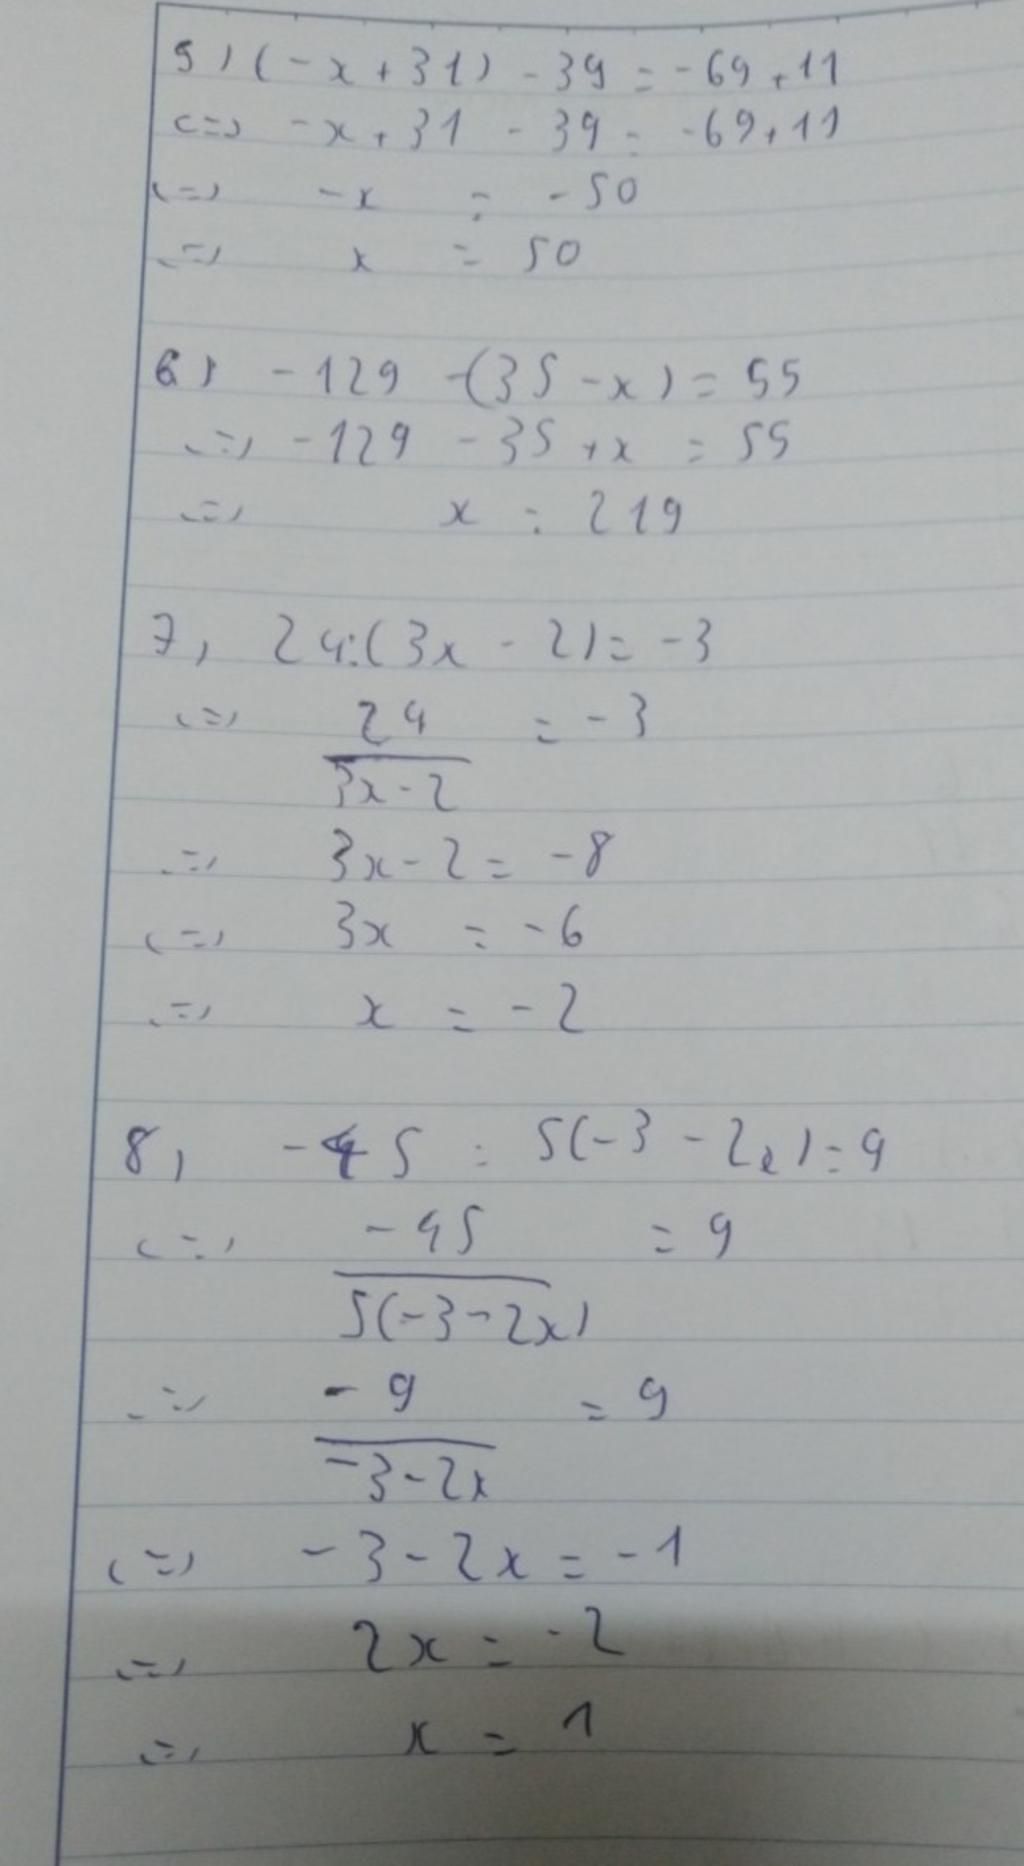 5) (-x+31) - 39 = -69+11
<=> -x+31 - 39 = -69+11
<=> -x = -50
<=> x = 50
6) -129 -(35 -x) = 55
<=> -129 -35 +x = 55
<=> x = 219
7, 24:(3x - 2) = -3
<=> 24/(3x-2) = -3
<=> 3x-2 = -8
<=> 3x = -6
<=> x = -2
8, -45 : 5(-3 -2x) = 9
<=> -45/(5(-3-2x)) = 9
<=> -9/(-3-2x) = 9
<=> -3-2x = -1
<=> 2x = -2
<=> x = 1